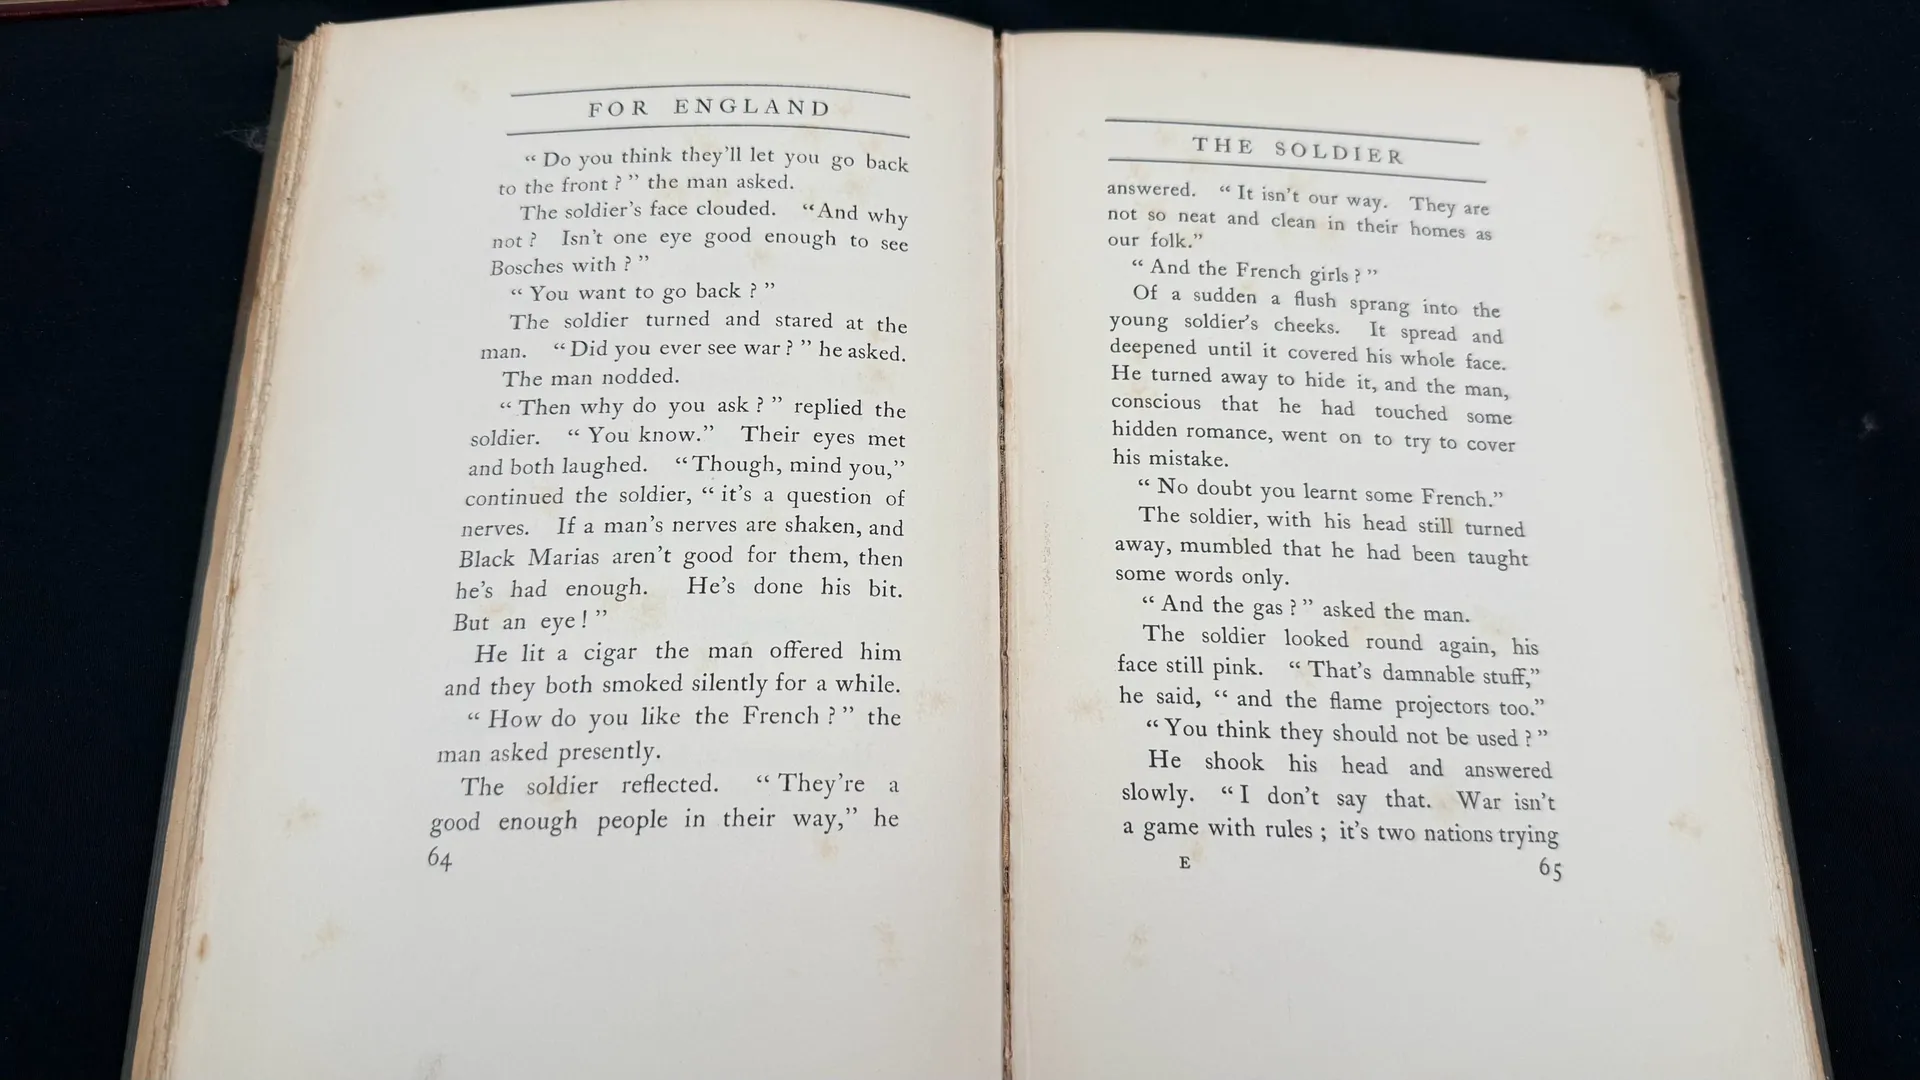 FOR ENGLAND
“ Do you think they’ll let you go back
to the front ? ” the man asked.
The soldier’s face clouded. “And why
not ? Isn’t one eye good enough to see
Bosches with ? ”
“ You want to go back ? ”
The soldier turned and stared at the
man. “Did you ever see war ? ” he asked.
The man nodded.
“ Then why do you ask ? ” replied the
soldier. “ You know.” Their eyes met
and both laughed. “Though, mind you,”
continued the soldier, “ it’s a question of
nerves. If a man’s nerves are shaken, and
Black Marias aren’t good for them, then
he’s had enough. He’s done his bit.
But an eye ! ”
He lit a cigar the man offered him
and they both smoked silently for a while.
“ How do you like the French ? ” the
man asked presently.
The soldier reflected. “ They’re a
good enough people in their way,” he
64
THE SOLDIER
answered. “ It isn’t our way. They are
not so neat and clean in their homes as
our folk.”
“ And the French girls ? ”
Of a sudden a flush sprang into the
young soldier’s cheeks. It spread and
deepened until it covered his whole face.
He turned away to hide it, and the man,
conscious that he had touched some
hidden romance, went on to try to cover
his mistake.
“ No doubt you learnt some French.”
The soldier, with his head still turned
away, mumbled that he had been taught
some words only.
“ And the gas ? ” asked the man.
The soldier looked round again, his
face still pink. “ That’s damnable stuff,”
he said, “ and the flame projectors too.”
“ You think they should not be used ? ”
He shook his head and answered
slowly. “ I don’t say that. War isn’t
a game with rules ; it’s two nations trying
E
65